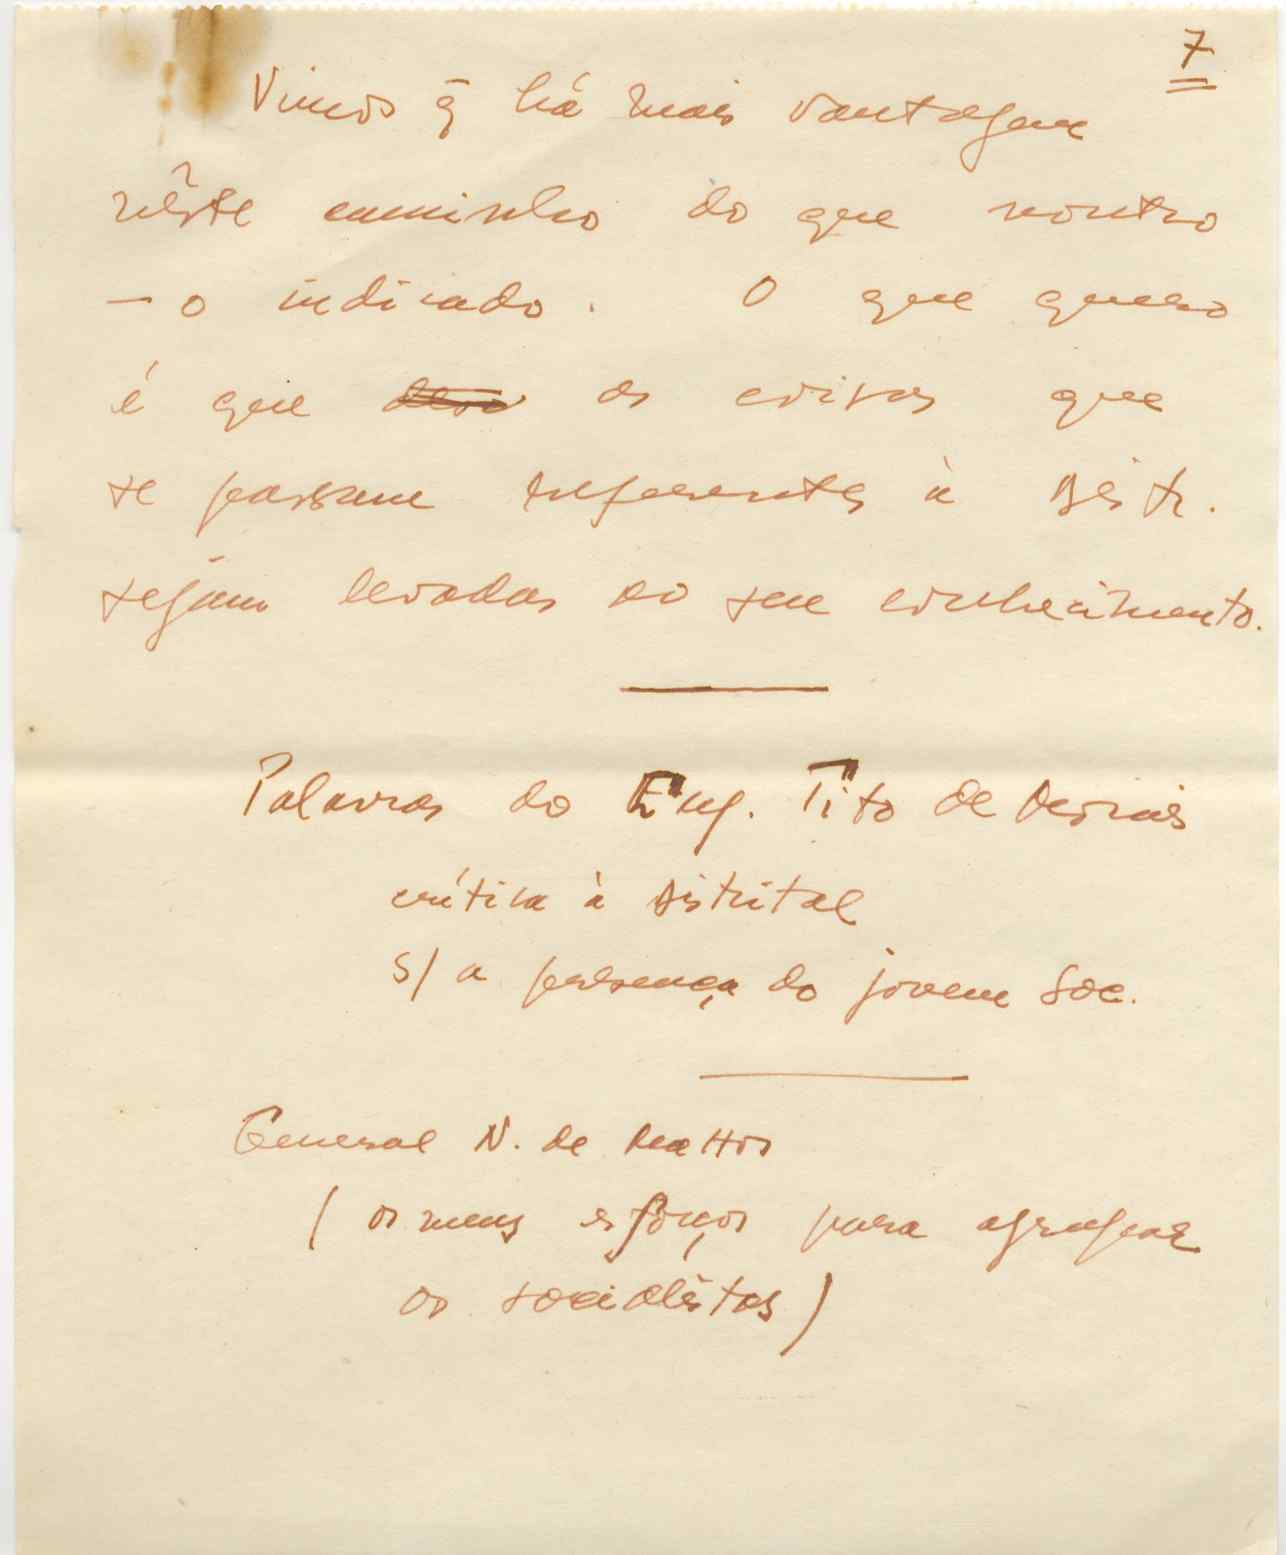 7
Vimos q̄ há mais vantagem
nêste caminho do que noutro
— o indicado. O que quero
é que as coisas que
se passam referentes à Distr.
sejam levadas ao seu conhecimento.
Palavras do Eng. Tito de Morais
crítica à Distrital
s/ a presença do jovem soc.
General N. de Mattos
(os meus esforços para agrupar
os socialistas)